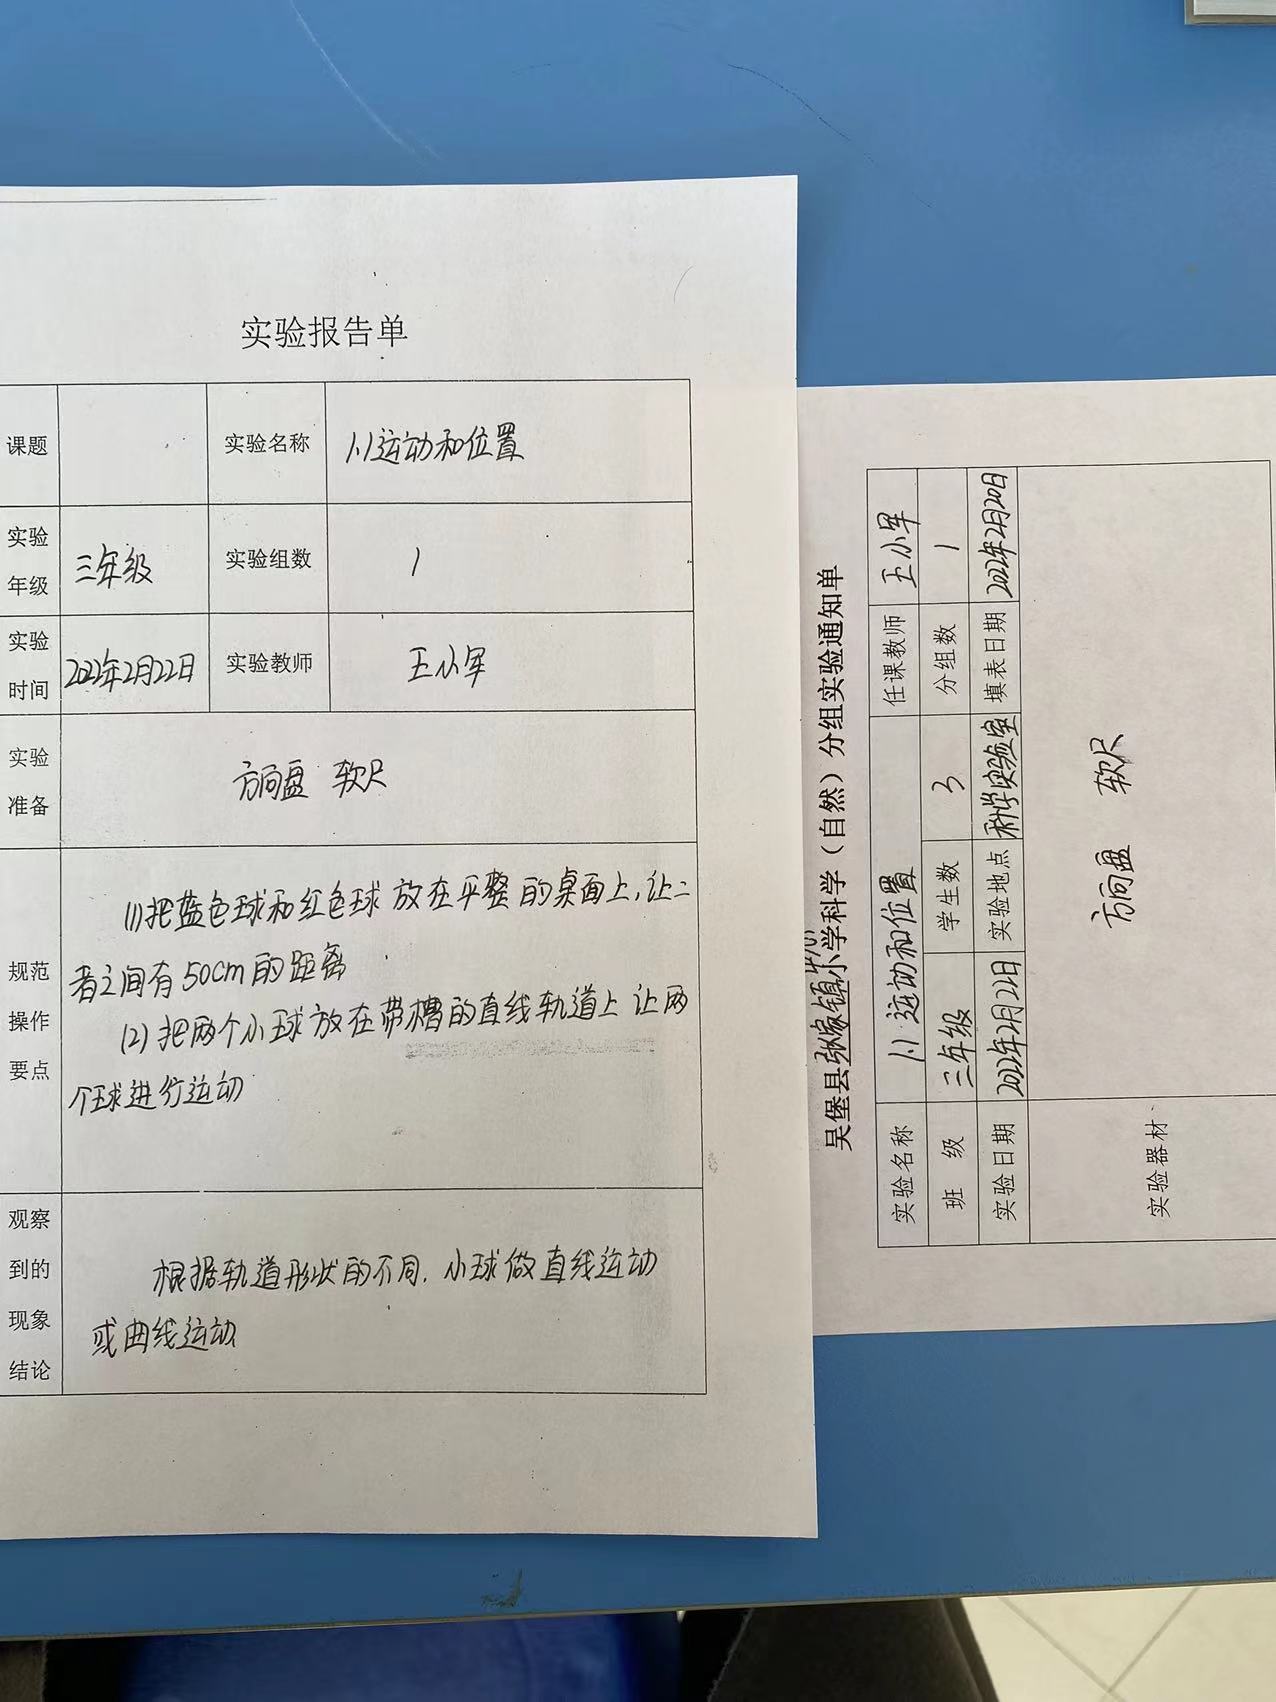 实验报告单
课题
实验名称
1.1运动和位置
实验
年级
三年级
实验组数
1
实验
时间
2022年2月22日
实验教师
王小军
实验
准备
方向盘 软尺
规范
操作
要点
(1)把蓝色球和红色球放在平整的桌面上,让二
者之间有50cm的距离
(2)把两个小球放在带槽的直线轨道上 让两
个球进行运动
观察
到的
现象
结论
根据轨道形状的不同,小球做直线运动
或曲线运动
吴堡县张家镇小学科学(自然)分组实验通知单
实验名称
1.1 运动和位置
任课教师
王小军
班 级
三年级
学生数
3
分组数
1
实验日期
2022年2月21日
实验地点
科学实验室
填表日期
2022年2月20日
实验器材
方向盘 软尺